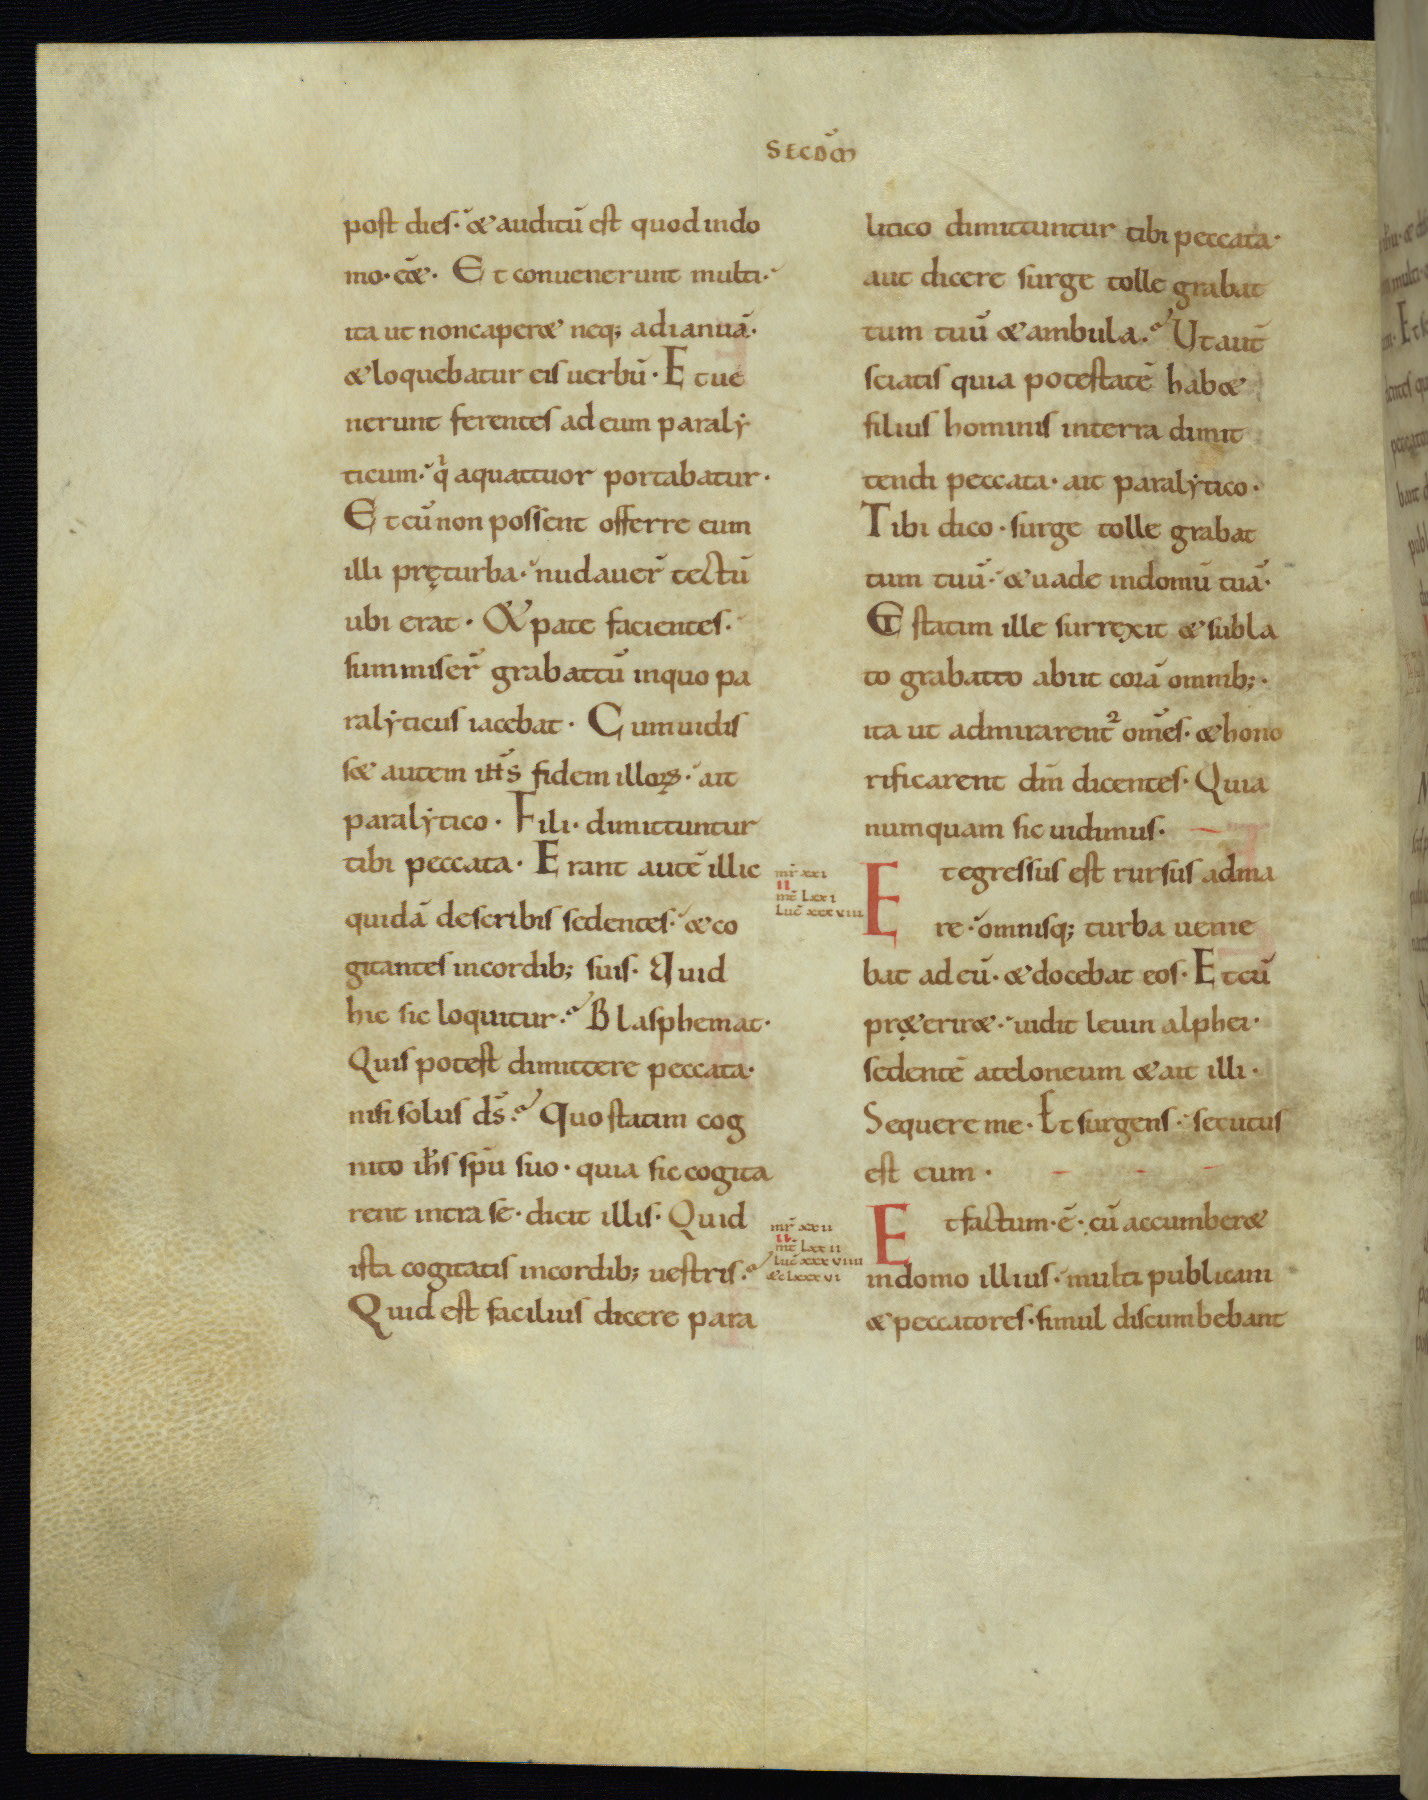 SECDM̄
post dies· & auditū est quod indo
mo·e͞e&· Et conuenerunt multi·
ita ut non caper& neq; ad ianuā·
& loquebatur eis uerbū· Et ue
nerunt ferentes ad eum paraly
ticum· q̓ a quattuor portabatur·
Et cū non possent offerre eum
illi prę turba· nudauer̄ tectū
ubi erat· & pate facientes·
summiser̄ grabattū in quo pa
ralyticus iacebat· Cum uidis
s& autem ih̄s fidem illoꝝ· ait
paralytico· Fili· dimittuntur
tibi peccata· Erant autē illic
quidā de scribis sedentes· & co
gitantes in cordib; suis· Quid
hic sic loquitur· Blasphemat·
Quis potest dimittere peccata·
nisi solus d̄s· Quo statim cog
nito ih̄s sp̄u suo· quia sic cogita
rent intra se· dicit illis· Quid
ista cogitatis in cordib; uestris·
Quid est facilius dicere para
litico dimittuntur tibi peccata·
aut dicere surge tolle grabat
tum tuū & ambula· Ut aut̄
sciatis quia potestatē hab&
filius hominis in terra dimit
tendi peccata· ait paralytico·
Tibi dico· surge tolle grabat
tum tuū· & uade in domū tuā·
Et statim ille surręxit & subla
to grabatto abiit corā omnib;·
ita ut admirarent᷑ om̄es· & hono
rificarent dm̄ dicentes· Quia
numquam sic uidimus·
mr̄ xxi
II
mt̄ Lxxi
Luc̄ xxxviii
Et egressus est rursus ad ma
re· omnisq; turba uenie
bat ad eū· & docebat eos· Et cū
pr&erir&· uidit leuin alphei·
sedentē ateloneum & ait illi·
Sequere me· Et surgens· secutus
est eum·
mr̄ xxii
II
mt̄ Lxxii
Luc̄ xxxviiii
&c Lxxxvi
Et factum·ē· cū accumber&
in domo illius· multi publicani
& peccatores· simul discumbebant